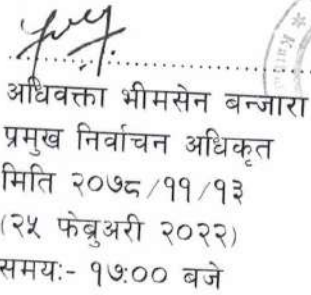 अधिवक्ता भीमसेन बन्जारा
प्रमुख निर्वाचन अधिकृत
मिति २०७८/११/१३
(२५ फेब्रुअरी २०२२)
समय:- १७:०० बजे